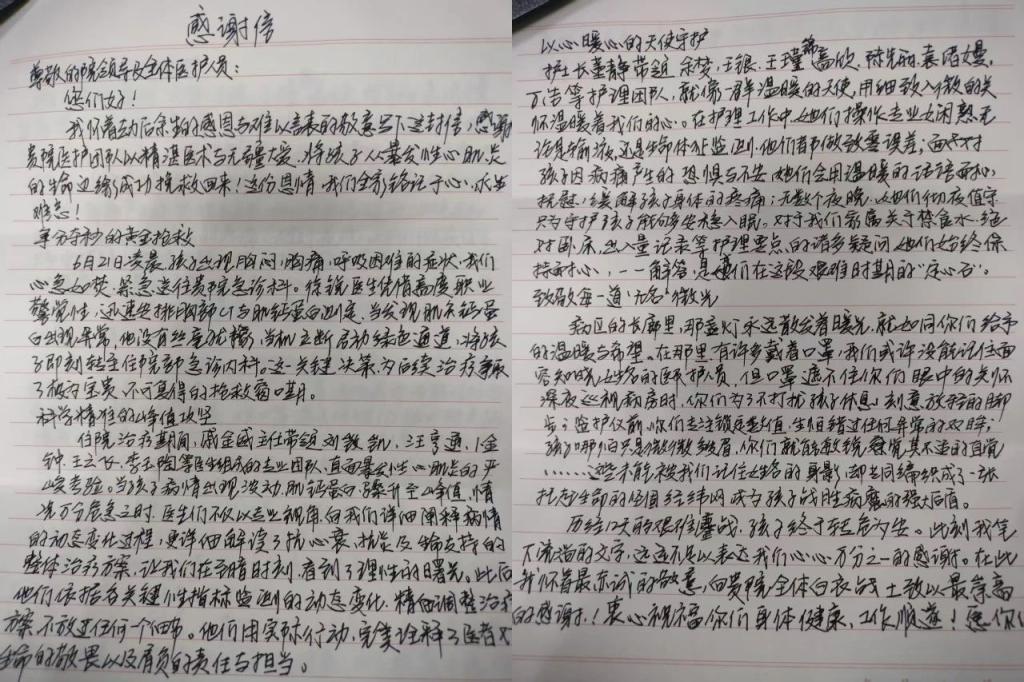 感谢信
尊敬的院领导及全体医护人员：
您们好！
我怀着劫后余生的感恩与难以言表的敬意写下这封信，感谢
贵院医护团队以精湛医术与无疆大爱，将孩子从暴发性心肌炎
的生命边缘成功抢救回来！这份恩情，我们全家铭记于心，永生
难忘！
争分夺秒的黄金抢救
6月21日凌晨，孩子出现胸闷，胸痛，呼吸困难的症状，我们
心急如焚，紧急送往贵院急诊科。徐锐医生凭借高度职业
警觉性，迅速安排胸部CT与肌钙蛋白测定，当发现肌钙蛋
白出现异常，他没有丝毫犹豫，当机立断启动绿色通道，将孩
子即刻转至住院部急诊内科。这一关键决策为后续治疗争取
了极为宝贵、不可复得的抢救窗口期。
科学精准的峰值攻坚
住院治疗期间，戚金威主任带领刘敏凯，汪亨通，金
钟，王云飞，李玉陶等医生组成的专业团队，直面暴发性心肌炎的严
峻考验。当孩子病情出现波动，肌钙蛋白骤升至峰值，情
况万分危急之时，医生们不仅以专业视角向我们详细阐释病情
的动态变化过程，更详细解读了抗心衰、抗炎及输支持的
整体治疗方案，让我们在至暗时刻，看到了理性的曙光。此后
他们依据各关键性指标监测的动态变化，精细调整治疗
方案，不放过任何一个细节。他们用实际行动，完美诠释了医者对
生命的敬畏以及肩负的责任与担当。
以心暖心的天使守护
护士长董静带领余梦，王银，王瑾，高欣，陈先丽，袁诏嫚，
万洁等护理团队，就像一群温暖的天使，用细致入微的关
怀温暖着我们的心。在护理工作中，她们操作专业女闲熟，无
论是输液，还是生命体征监测，他们都做到零误差；面对
孩子因病痛产生的恐惧与不安，她们会用温暖的话语和
抚慰，缓解孩子身体的疼痛；无数个夜晚，她们彻夜值守
只为守护孩子能够安稳入眠。对于我们家属关于禁食水、绝
对卧床、出入量记录等护理要点的诸多疑问，她们始终保
持耐心，一一解答，是她们在这段艰难时期的"定心石"。
致敬每一道"无名"微光
病区的长廊里，那盏灯永远散发着暖光，就如同你们给予
的温暖与希望。在那里，有许多戴着口罩，我们或许没能记住面
容知晓姓名的医护人员，但口罩遮不住你们眼中的关怀
深夜巡视病房时，你们为了不打扰孩子休息，刻意放轻的脚
步；监护仪前，你们专注锁定数值，生怕错过任何异常的双眸；
孩子哪怕只是微微皱眉，你们就能敏锐察觉其不适的直觉
……这些未能被我们记住姓名的身影，却共同编织成了一张
托起生命的经纬网，成为孩子战胜病魔的强大后盾。
历经12天的艰难鏖战，孩子终于转危为安。此刻我笔
下流淌的文字，远远不足以表达我们心心万分之一的感谢。在此
我怀着最赤诚的敬意，向贵院全体白衣战士致以最崇高
的感谢！衷心祝福你们身体健康，工作顺遂！愿你们